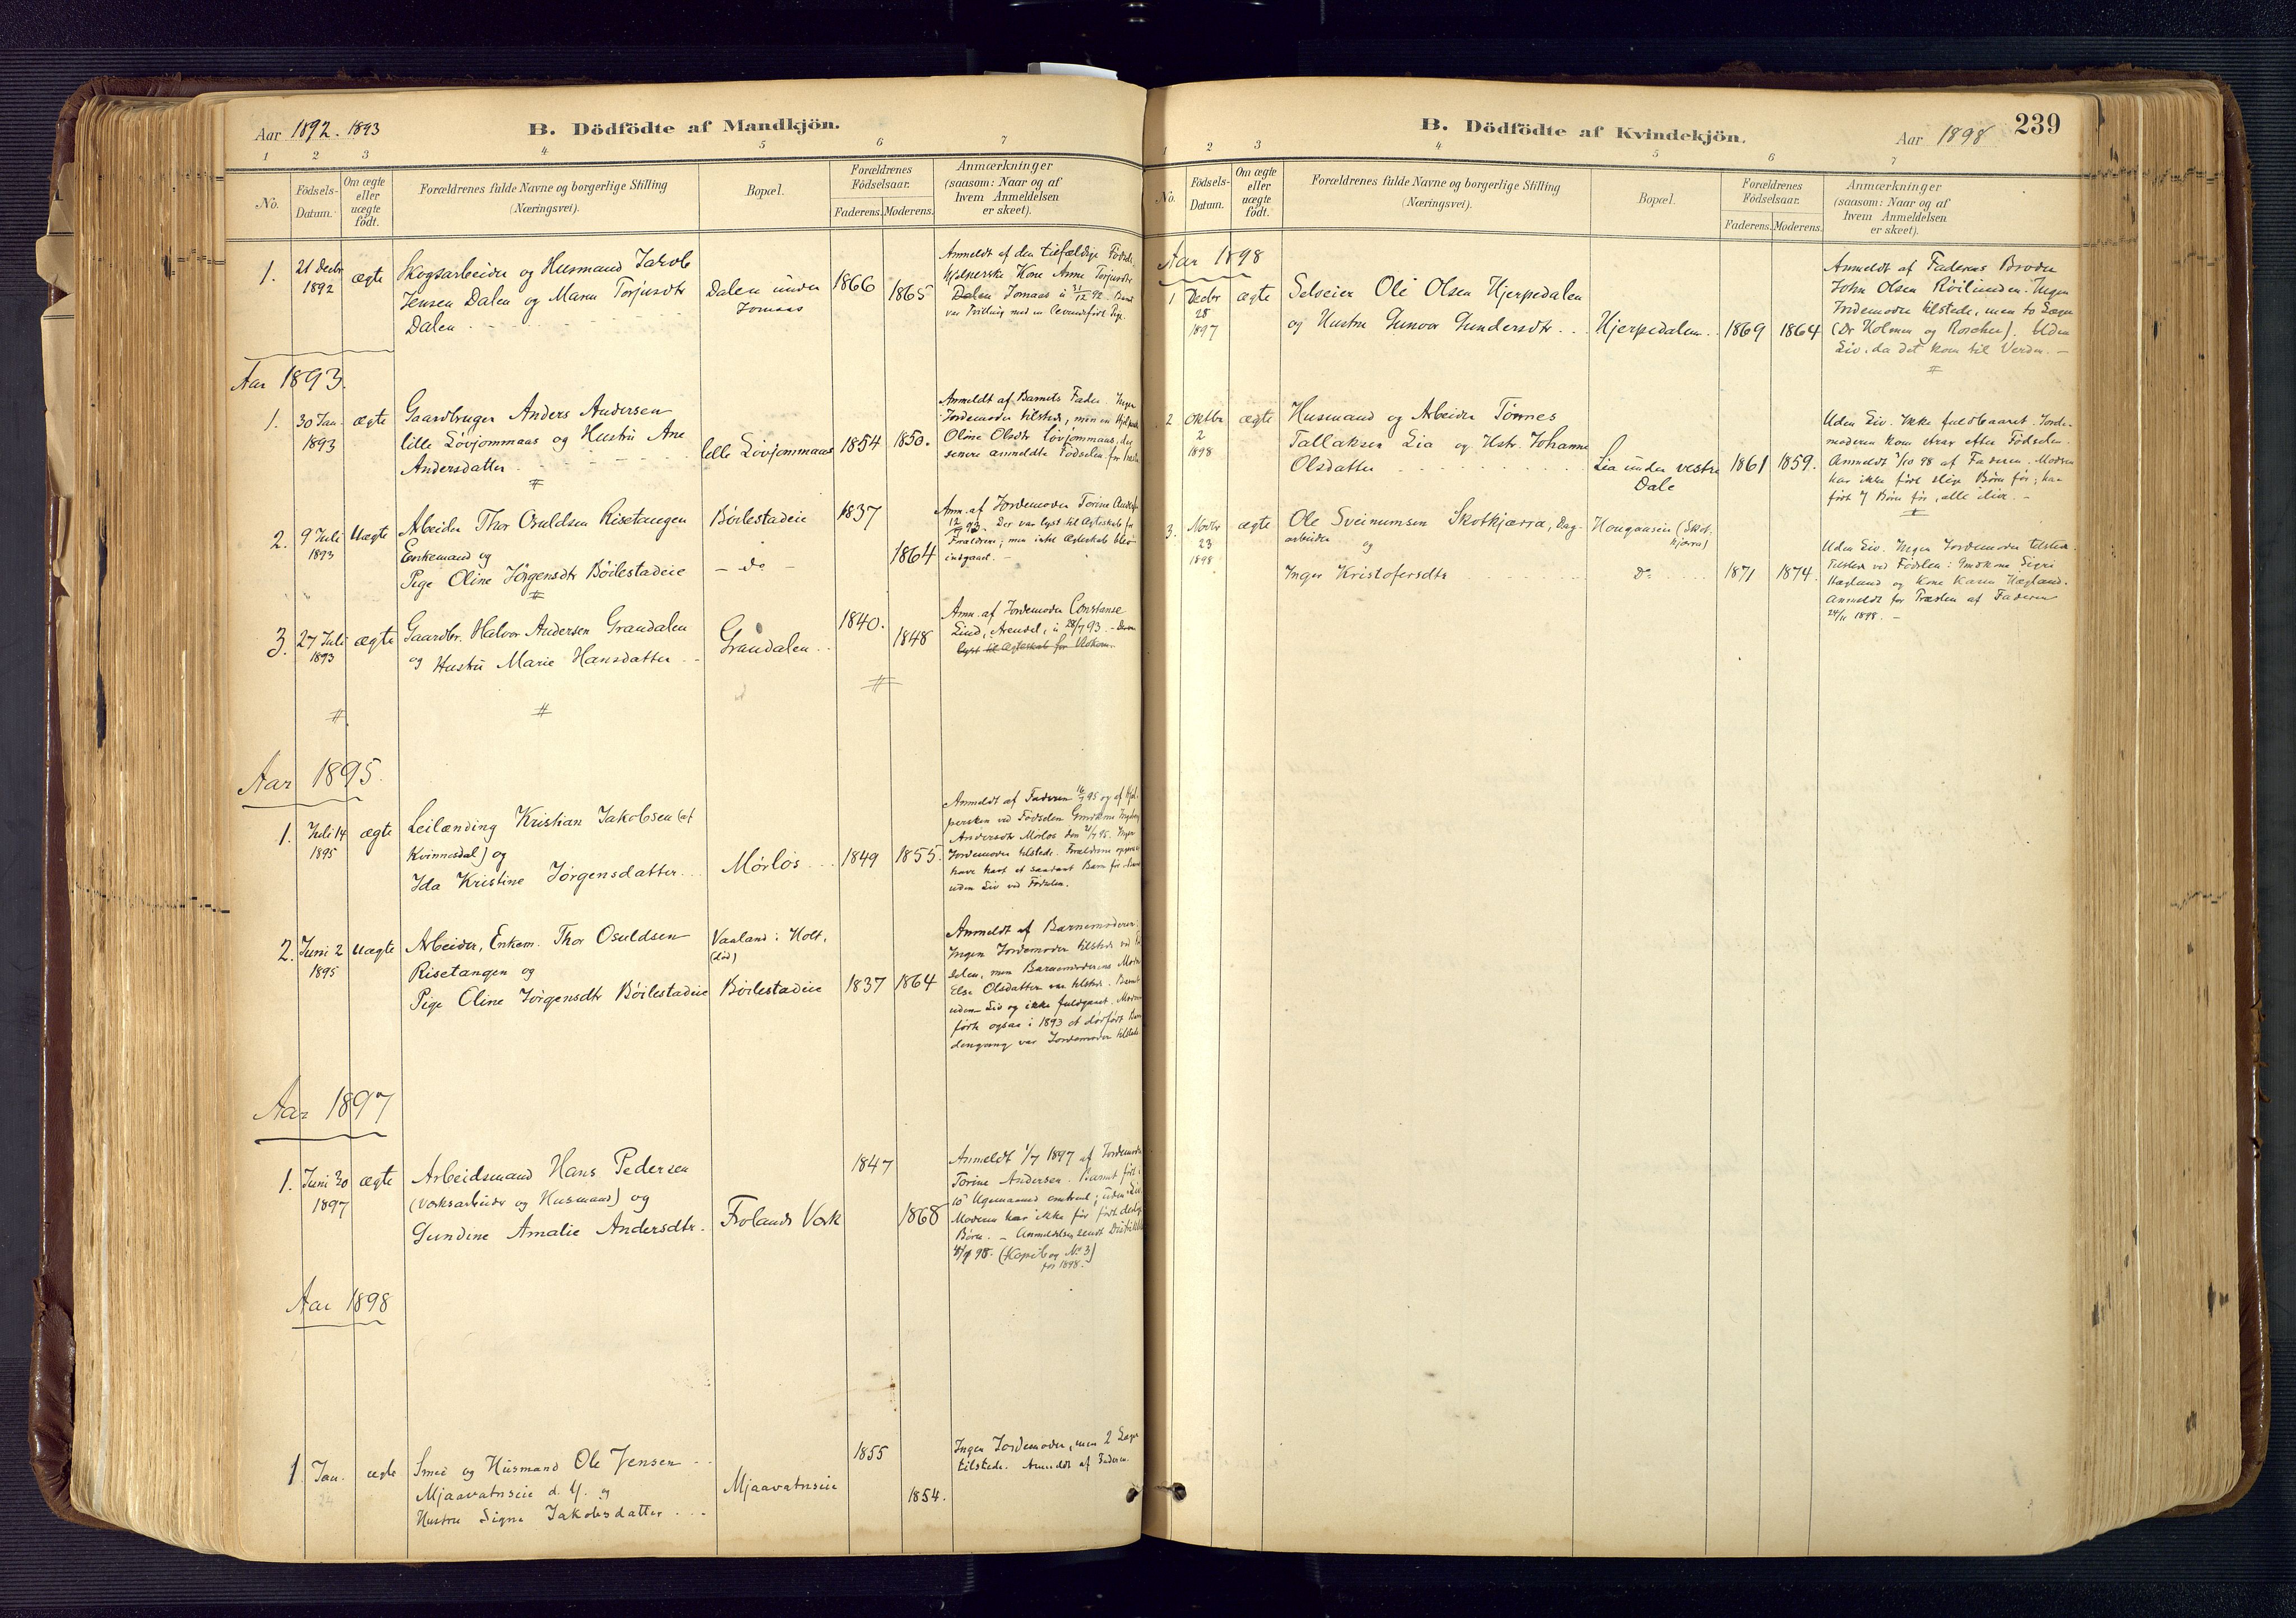 Aar 1892. 1893
B. Dödfödte af Mandkjön.
1 2 3 4 5 6 7
No.
Födsels-
Datum.
Om ægte
eller
uægte
födt.
Forældrenes fulde Navne og borgerlige Stilling
(Næringsvei).
Bopæl.
Forældrenes
Födselsaar.
Faderens. Moderens.
Anmærkninger
(saasom: Naar og af
hvem Anmeldelsen
er skeet).
1. 21 Decbr
1892
ægte
Skogsarbeider og Husmand Jakob
Jensen Dalen og Maren Torjusdtr
Dalen
Dalen under
Jomaas
1866
1865
Anmeldt af den tilfældige Fødsels-
hjelperske Kone Anne Torjusdtr
Dalen Jomaas
Aar 1893.
1. 30 Jan.
1893
ægte
Gaardbruger Anders Andersen
lille Løvjommaas og Hustru Ane
Andersdatter
lille Løvjommaas
1854 1850.
Anmeldt af Barnets Fader. Ingen
Jordemoder tilstede, men en Hjelpersk
Oline Olsdtr Løvjommaas, der
senere anmeldte Fødselen for
2. 9 Juli
1893
Uægte
Arbeider Thor Osuldsen Risetangen
Enkemand og
Pige Oline Jørgensdtr Bøilestadeie
Bøilestadeie
- do -
1837
1864
Anm. af Jordemoder Torine Anders
12/7 93. Der var lyst til Ægteskab for
Forældrene; men intet Ægteskab blev
indgaaet. -
3. 27 Juli
1893
ægte
Gaardbr. Halvor Andersen Grandalen
og Hustru Marie Hansdatter
Grandalen
1840.
1848
Anm. af Jordemoder Constanse
Lind, Arendal, 28/7 93.
lyst til Ægteskab for Vedkom.
Aar 1895.
1. Juli 14
1895
ægte
Leilænding Kristian Jakobsen (af
Kvinnesdal) og
Ida Kristine Jørgensdatter
Mørløs
1849 1855.
Anmeldt af Faderen 16/7 95 og af Hjel-
persken ved Fødselen
Andersdtr Mørløs
Jordemoder tilstede. Forældrene
have havt et saadant Barn før
uden Liv ved Fødselen.
2. Juni 2
1895
Uægte
Arbeider, Enkem. Thor Osuldsen
Risetangen og
Pige Oline Jørgensdtr Bøilestadeie
Vaaland i Holt,
(død)
Bøilestadeie
1837 1864
Anmeldt af Barnemoderen.
Ingen Jordemoder tilstede ved Fø-
selen, men Barnemoderens Moder
Else Olsdatter var tilstede. Barnet
uden Liv og ikke fuldgaaet. Moderen
fødte ogsaa i 1893 et dødfødt Barn
dengang var Jordemoder tilstede
Aar 1897
1. Juni 30
1897
ægte
Arbeidsmand Hans Pedersen
(Verksarbeider og Husmand) og
Gundine Amalie Andersdtr.
Frolands Verk
1847
1868
Anmeldt 1/7 1897 af Jordemoder
Torine Andersen. Barnet født
10 Ugemaaned omtrent; uden Liv.
Moderen har ikke før født dødf.
Børn. - Anmeldelse sendt Distrikts
98. (Kopibog No 3)
for 1898.
Aar 1898
1 Jan. ægte
Smed og Husmand Ole Jensen
Mjaavatnseie d. y. og
Hustru Signe Jakobsdatter
Mjaavatnseie
1855
1854.
Ingen Jordemoder, men 2 Læger
tilstede. Anmeldt af Faderen.
B. Dödfödte af Kvindekjön.
Aar 1898
239
1 2 3 4 5 6 7
No.
Födsels-
Datum.
Om ægte
eller
uægte
födt.
Forældrenes fulde Navne og borgerlige Stilling
(Næringsvei).
Bopæl.
Forældrenes
Födselsaar.
Faderens. Moderens.
Anmærkninger
(saasom: Naar og af
hvem Anmeldelsen
er skeet).
Aar 1898
1 Decbr
28
1897
ægte
Selveier Ole Olsen Hjerpedalen
og Hustru Gunvor Gundersdtr.
Hjerpedalen
1869 1864
Anmeldt af Faderens Broder
John Olsen Røilienden. Ingen
Jordemoder tilstede, men to Læger
(Dr Holmen og Roscher). Uden
Liv, da det kom til Verden. -
2 Oktbr
2
1898
ægte
Husmand og Arbeider Tønnes
Tallaksen Lia og Hstr. Johanne
Olsdatter
Lia under vestre
Dale
1861 1859.
Uden Liv. Ikke fuldbaaret. Jorde-
moderen kom strax efter Fødselen.
Anmeldt 7/10 98 af Faderen. Moderen
har ikke født slige Børn før; har
født 7 Børn før, alle ilive. -
3. Novbr
23
1898
ægte
Ole Sveinumsen Skotkjærra, Dag-
arbeider
og
Inger Kristofersdtr
Hougaaseie (Skot-
kjærra)
Do
1871 1874.
Uden Liv. Ingen Jordemoder tilstede.
Tilstede ved Fødslen: Gmdkone Sigri
Hægland og Kone Karen Hægland.
Anmeldt for Præsten af Faderen
24/11 1898. -